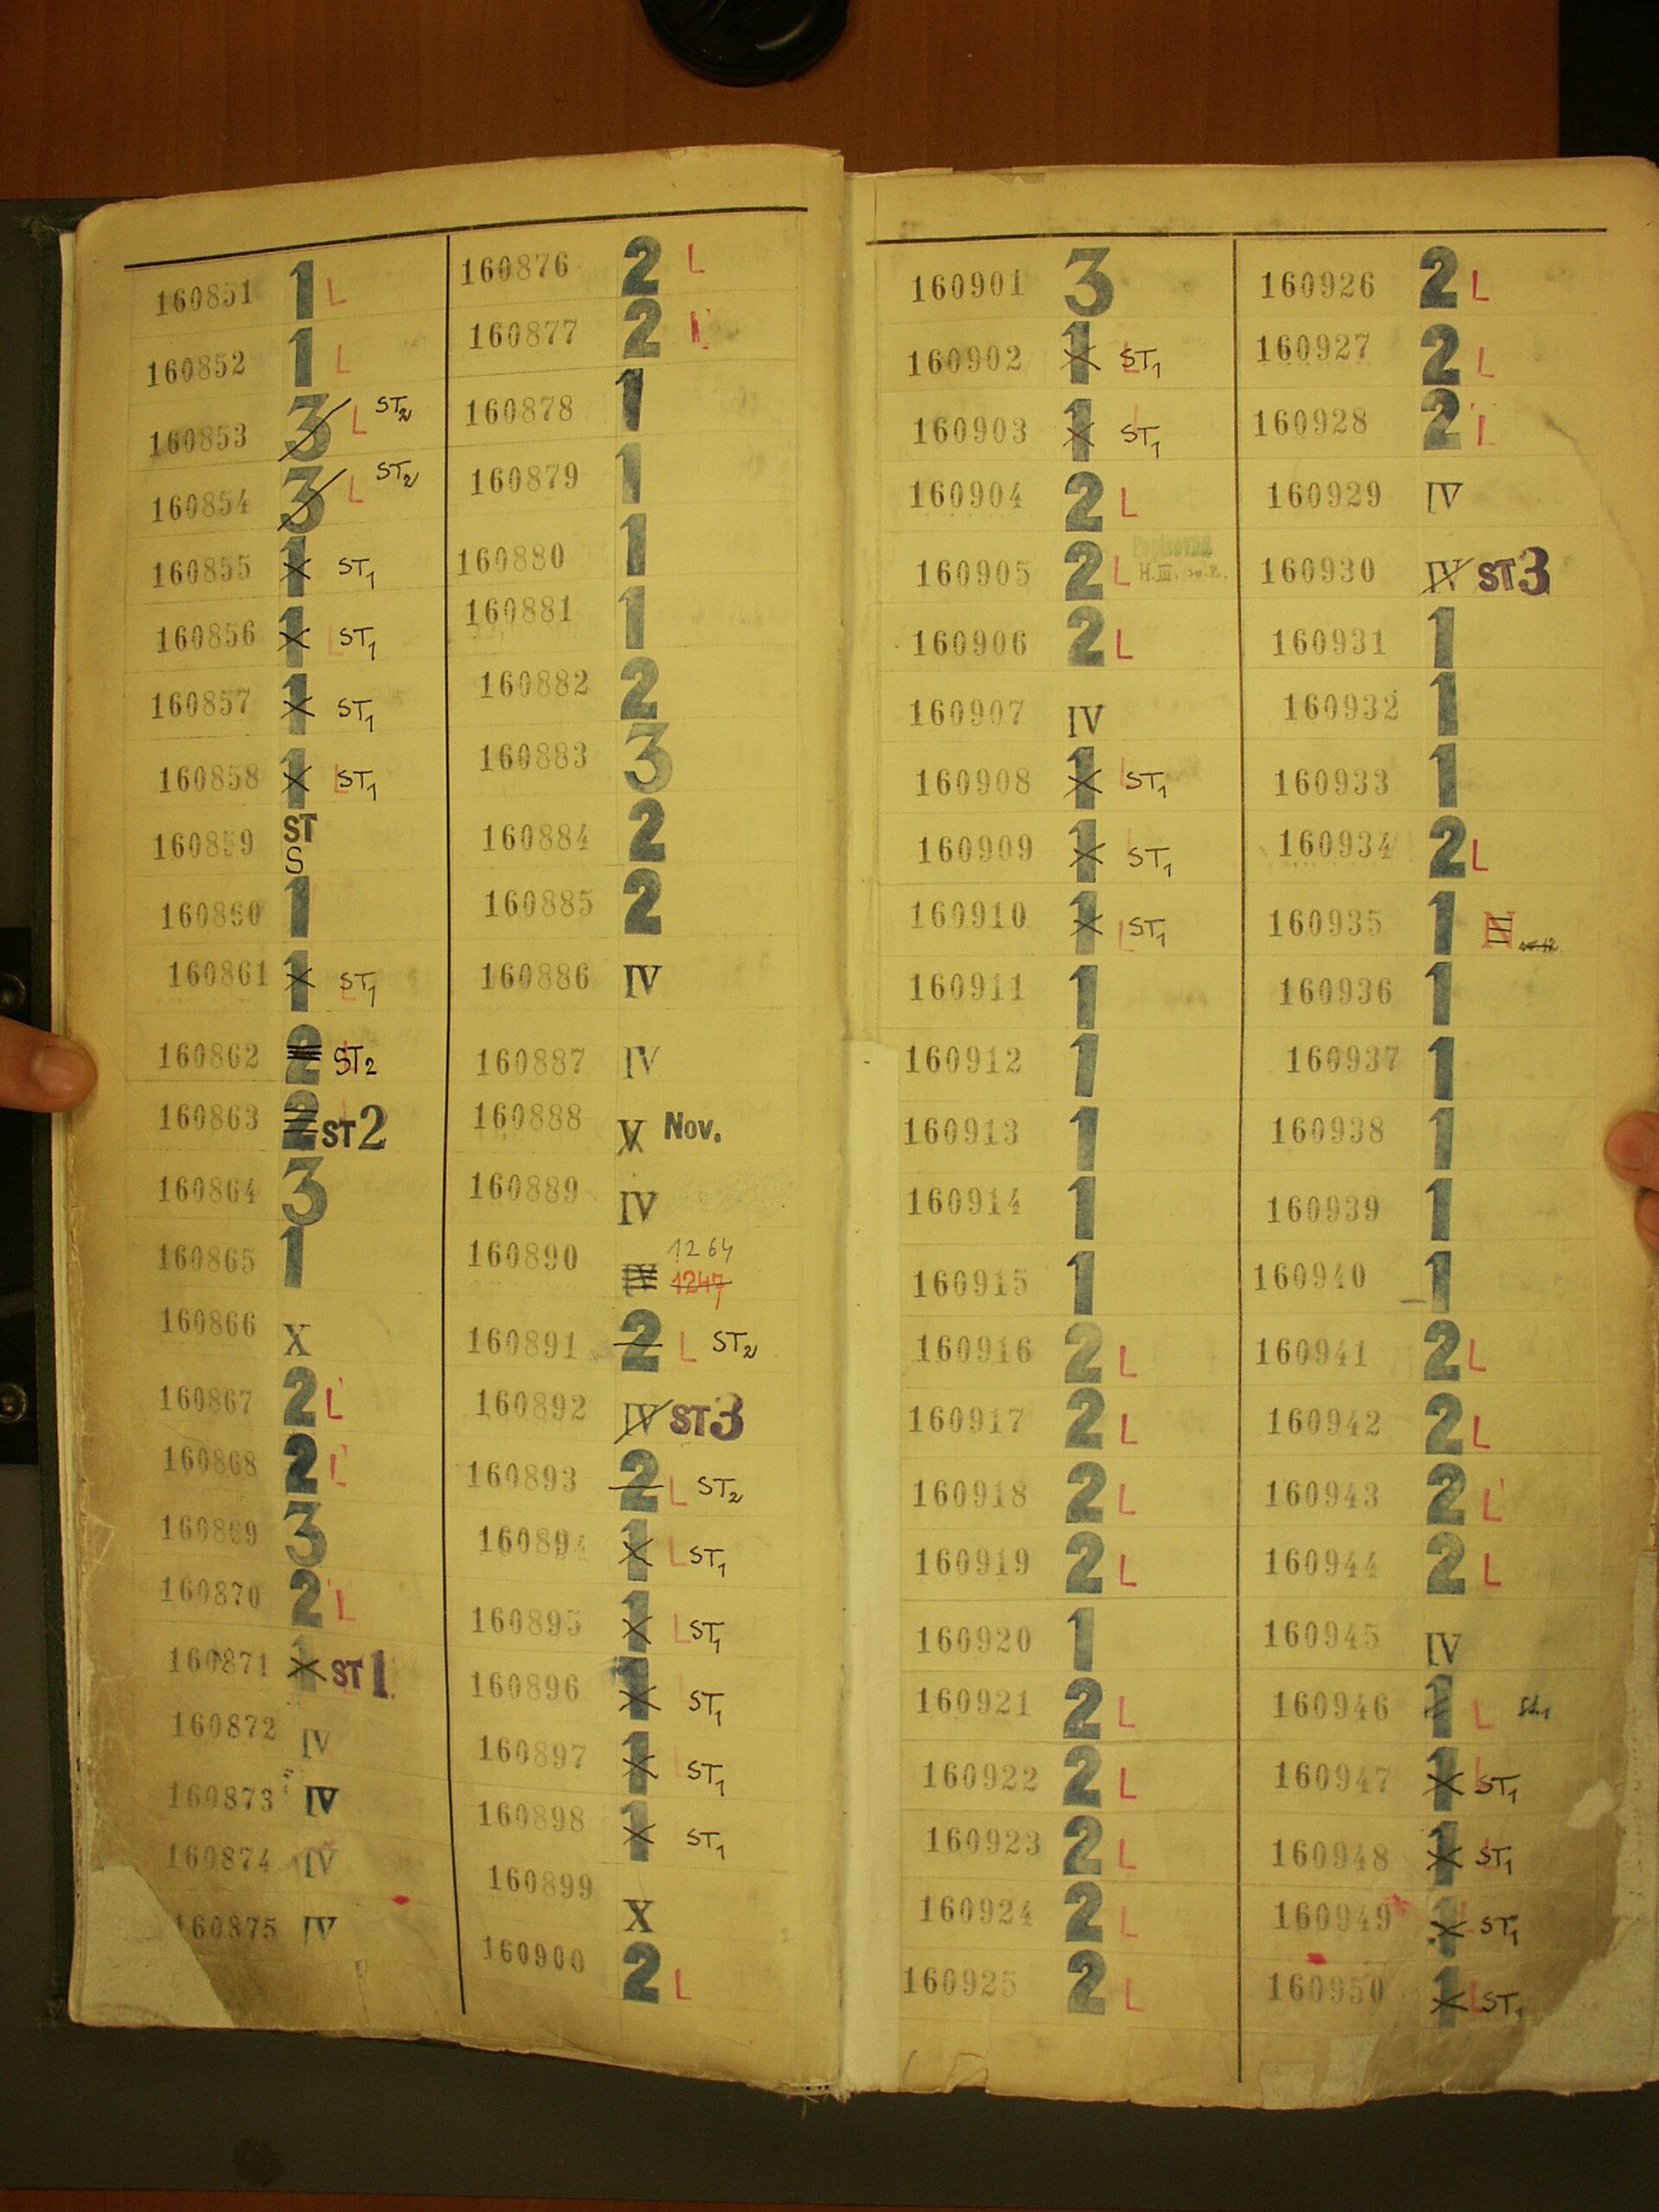 160851 1 L
160852 1 L
160853 3 L ST2
160854 3 L ST2
160855 1 ST1
160856 1 L ST1
160857 1 ST1
160858 1 L ST1
160859 ST
S
160860 1
160861 1 L ST1
160862 2 ST2
160863 2 ST2
160864 3
160865 1
160866 X
160867 2 L
160868 2 L
160869 3
160870 2 L
160871 1 ST1
160872 IV
160873 IV
160874 IV
160875 IV
160876 2 L
160877 2 L
160878 1
160879 1
160880 1
160881 1
160882 2
160883 3
160884 2
160885 2
160886 IV
160887 IV
160888 X Nov.
160889 IV
1264
160890 IV 1247
160891 2 L ST2
160892 IV ST3
160893 2 L ST2
160894 1 L ST1
160895 1 L ST1
160896 1 ST1
160897 1 L ST1
160898 1 ST1
160899 X
160900 2 L
160901 3
160902 1 L ST1
160903 1 L ST1
160904 2 L
Popisovna
160905 2 L H.III.
160906 2 L
160907 IV
160908 1 L ST1
160909 1 L ST1
160910 1 L ST1
160911 1
160912 1
160913 1
160914 1
160915 1
160916 2 L
160917 2 L
160918 2 L
160919 2 L
160920 1
160921 2 L
160922 2 L
160923 2 L
160924 2 L
160925 2 L
160926 2 L
160927 2 L
160928 2 L
160929 IV
160930 IV ST3
160931 1
160932 1
160933 1
160934 2 L
160935 1 N
160936 1
160937 1
160938 1
160939 1
160940 1
160941 2 L
160942 2 L
160943 2 L
160944 2 L
160945 IV
160946 1 L St1
160947 1 L ST1
160948 1 L ST1
160949 1 L ST1
160950 1 L ST1